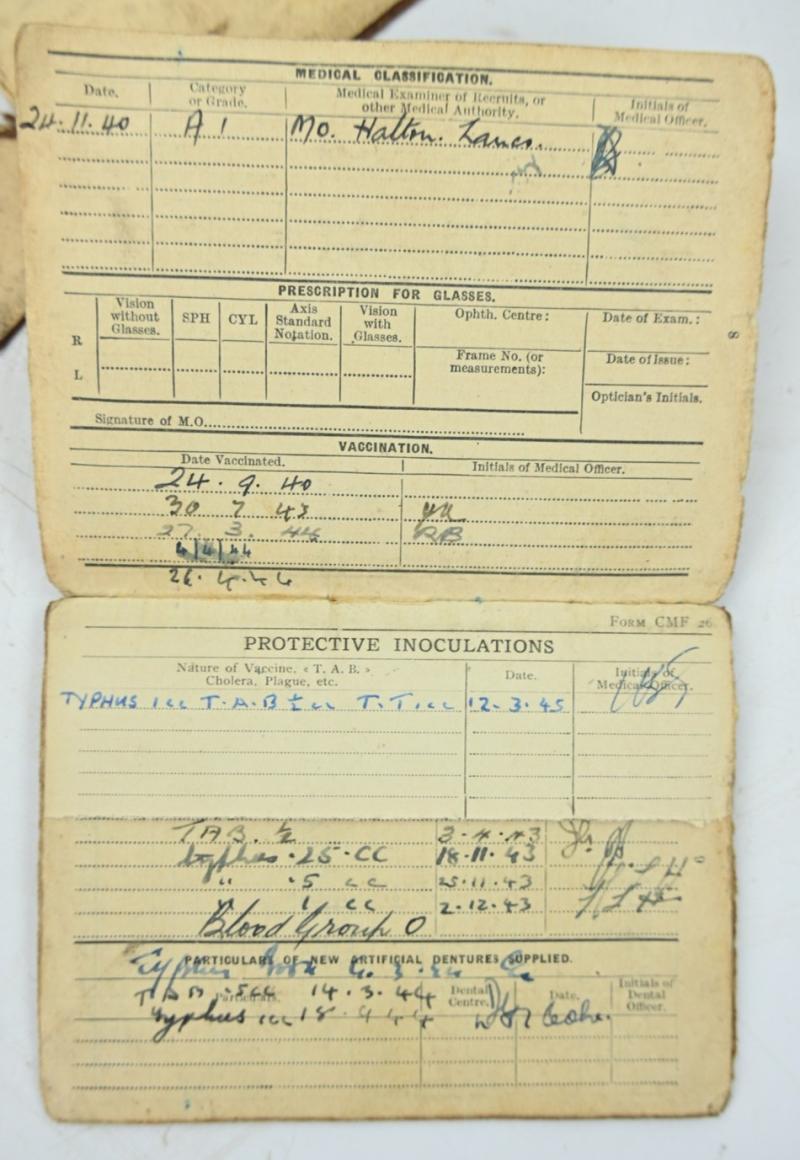 MEDICAL CLASSIFICATION.
Date. Category or Grade. Medical Examiner of Recruits, or other Medical Authority. Initials of Medical Officer.
24.11.40 A 1 MO. Halton. Lancs.
PRESCRIPTION FOR GLASSES.
Vision without Glasses. SPH CYL Axis Standard Notation. Vision with Glasses. Ophth. Centre: Date of Exam.:
R
Frame No. (or measurements): Date of Issue:
L
Optician's Initials.
Signature of M.O.
8
VACCINATION.
Date Vaccinated. Initials of Medical Officer.
24.9.40
30 7 43
27. 3. 44 RB
4/4/44
26.4.44
FORM CMF 26
PROTECTIVE INOCULATIONS
Nature of Vaccine, « T. A. B. » Cholera, Plague, etc. Date. Initials of Medical Officer.
TYPHUS 1cc T.A.B ½cc T.T.1cc 12.3.45
TAB. ½ 3.4.43
typhus .25 CC 18.11.43
" .5 cc 25.11.43
1 cc 2.12.43
Blood Group O
PARTICULARS OF NEW ARTIFICIAL DENTURES SUPPLIED.
Typhus
Particulars. Dental Centre. Date. Initials of Dental Officer.
TAB .5cc 14.3.44
Typhus 1cc 18 4 44